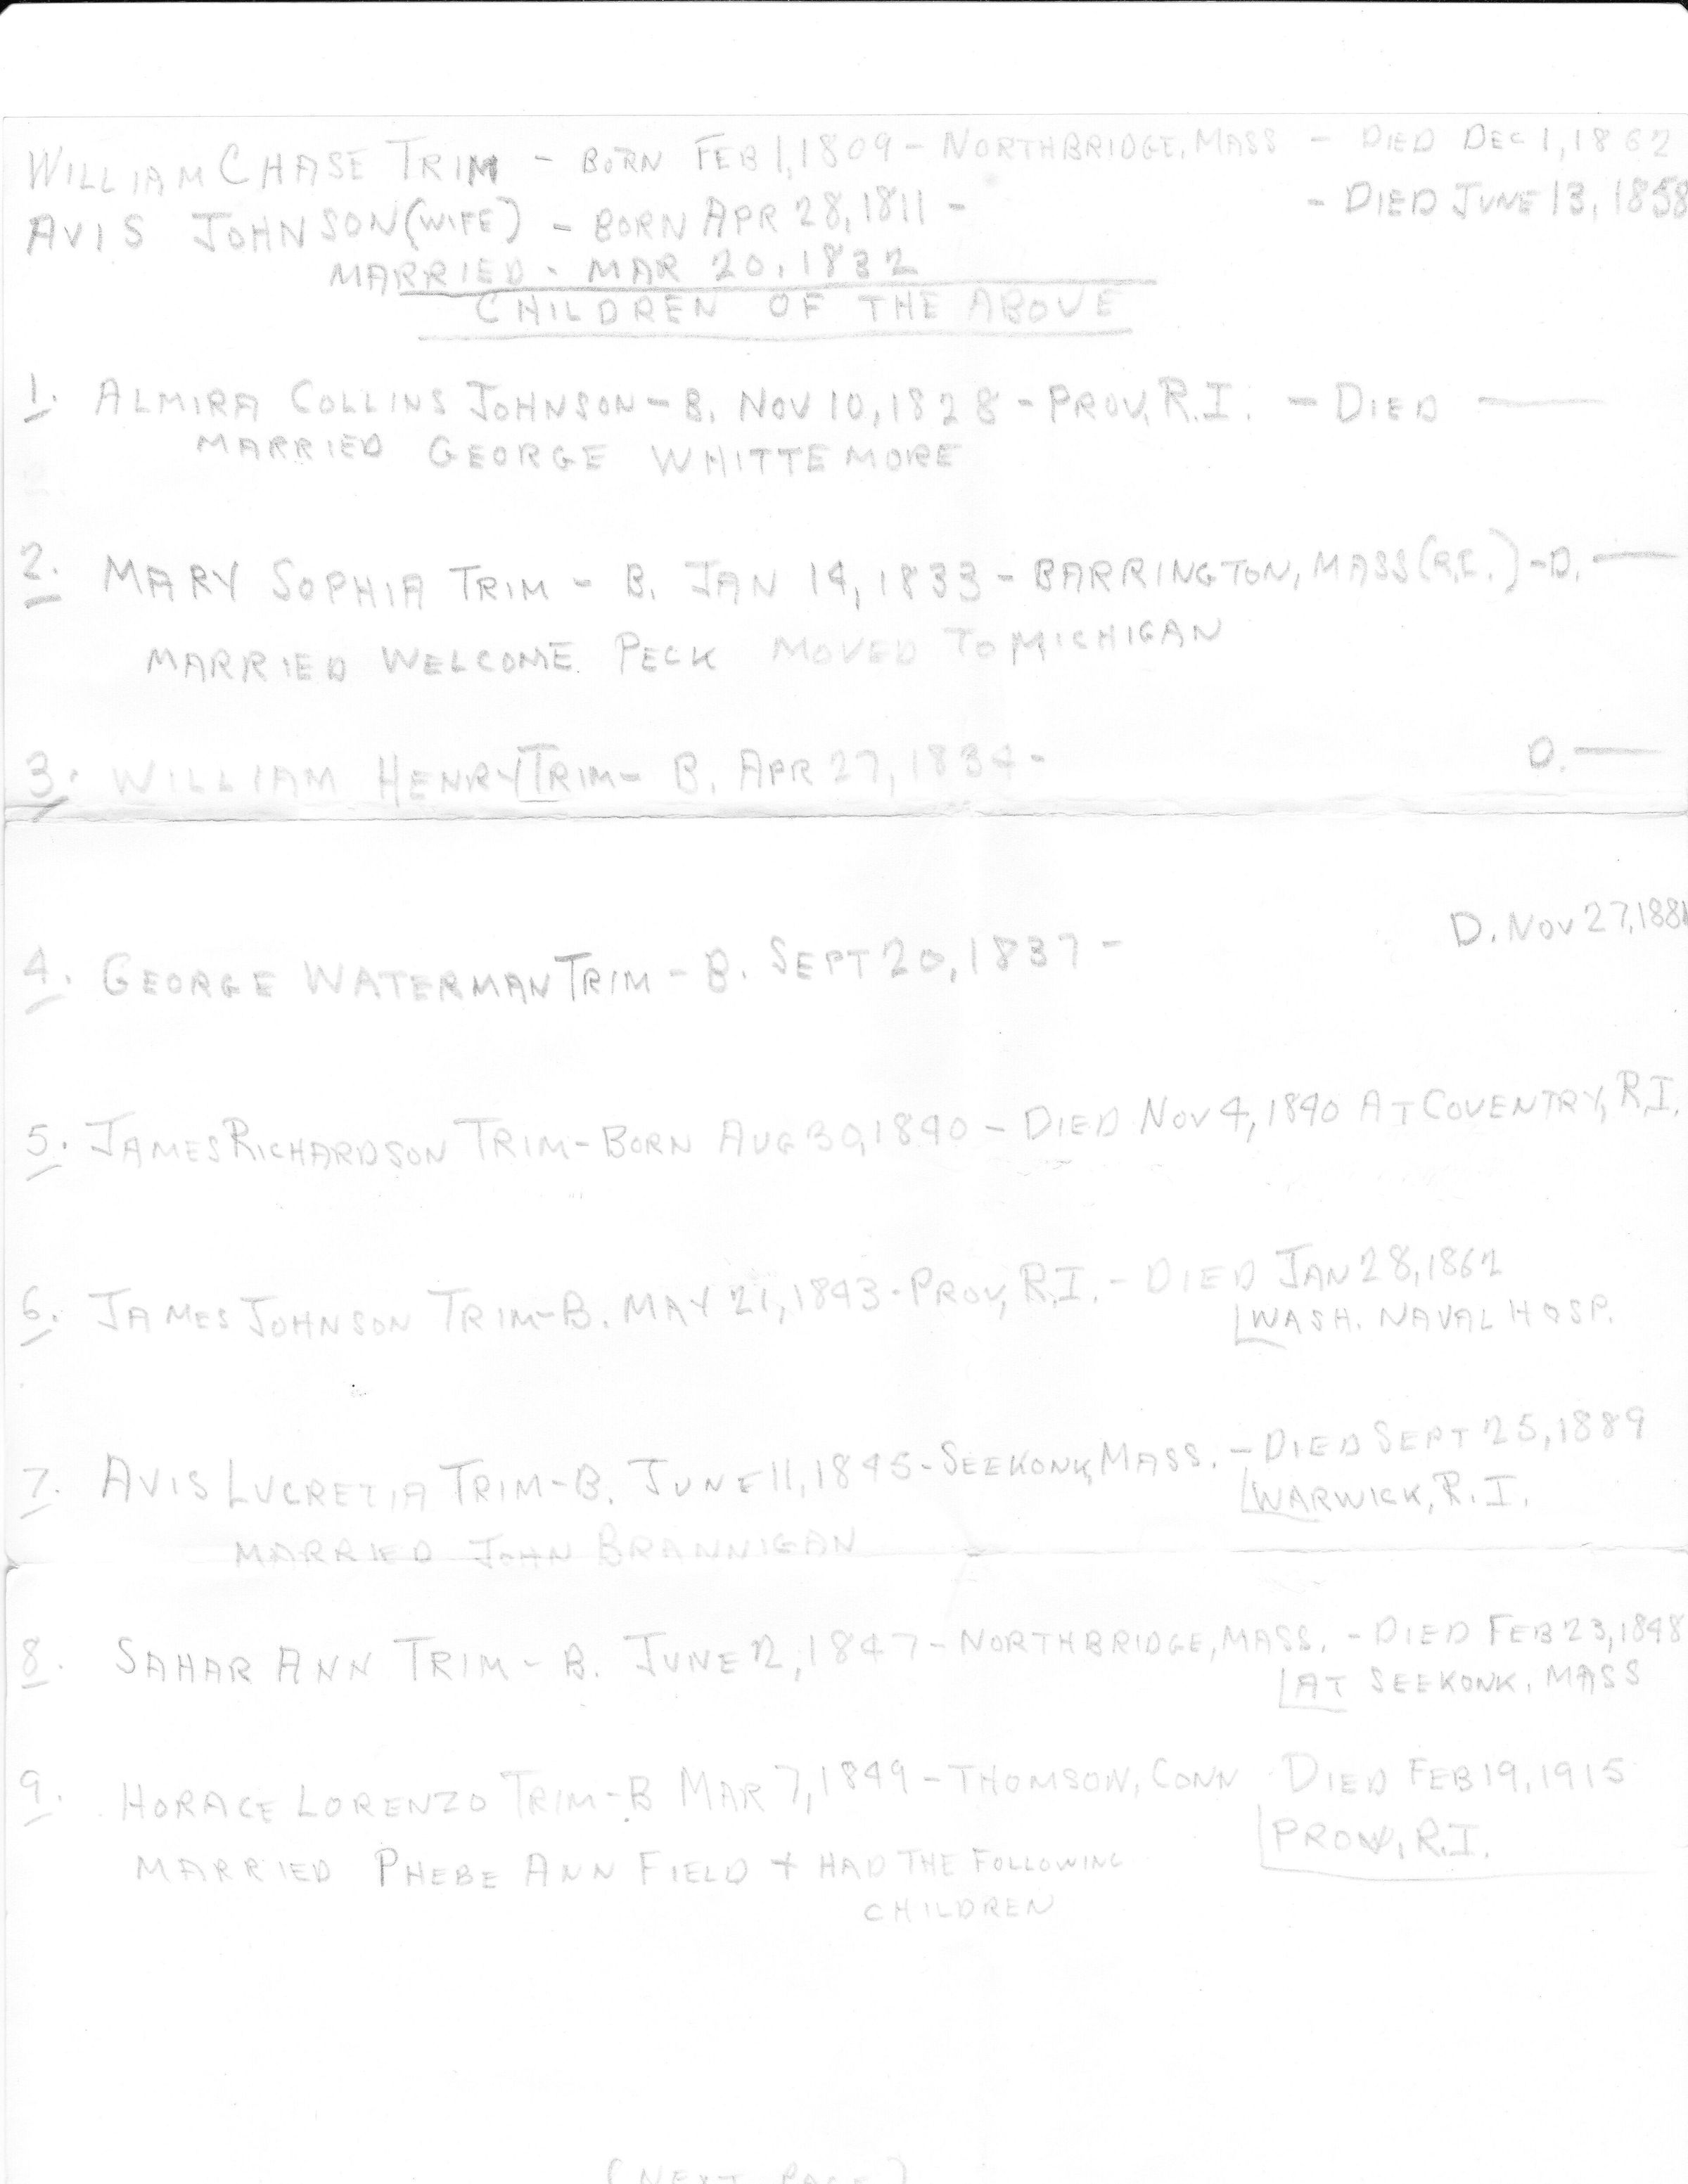 WILLIAM CHASE TRIM - BORN FEB 1, 1809 - NORTHBRIDGE, MASS - DIED DEC 1, 1862
AVIS JOHNSON (WIFE) - BORN APR 28, 1811 - - DIED JUNE 13, 1858
MARRIED - MAR 20, 1832
CHILDREN OF THE ABOVE
1. ALMIRA COLLINS JOHNSON - B. NOV 10, 1828 - PROV, R.I. - DIED —
MARRIED GEORGE WHITTEMORE
2. MARY SOPHIA TRIM - B. JAN 14, 1833 - BARRINGTON, MASS (R.I.) - D. —
MARRIED WELCOME PECK MOVED TO MICHIGAN
3. WILLIAM HENRY TRIM - B. APR 27, 1834 - D. —
4. GEORGE WATERMAN TRIM - B. SEPT 20, 1837 - D. NOV 27, 1881
5. JAMES RICHARDSON TRIM - BORN AUG 30, 1840 - DIED NOV 4, 1840 AT COVENTRY, R.I.
6. JAMES JOHNSON TRIM - B. MAY 21, 1843 - PROV, R.I. - DIED JAN 28, 1862
WASH. NAVAL HOSP.
7. AVIS LUCRETIA TRIM - B. JUNE 11, 1845 - SEEKONK, MASS. - DIED SEPT 25, 1889
WARWICK, R.I.
MARRIED JOHN BRANNIGAN
8. SAHAR ANN TRIM - B. JUNE 12, 1847 - NORTHBRIDGE, MASS. - DIED FEB 23, 1848
AT SEEKONK, MASS
9. HORACE LORENZO TRIM - B MAR 7, 1849 - THOMSON, CONN DIED FEB 19, 1915
PROV, R.I.
MARRIED PHEBE ANN FIELD + HAD THE FOLLOWING
CHILDREN
(NEXT PAGE)